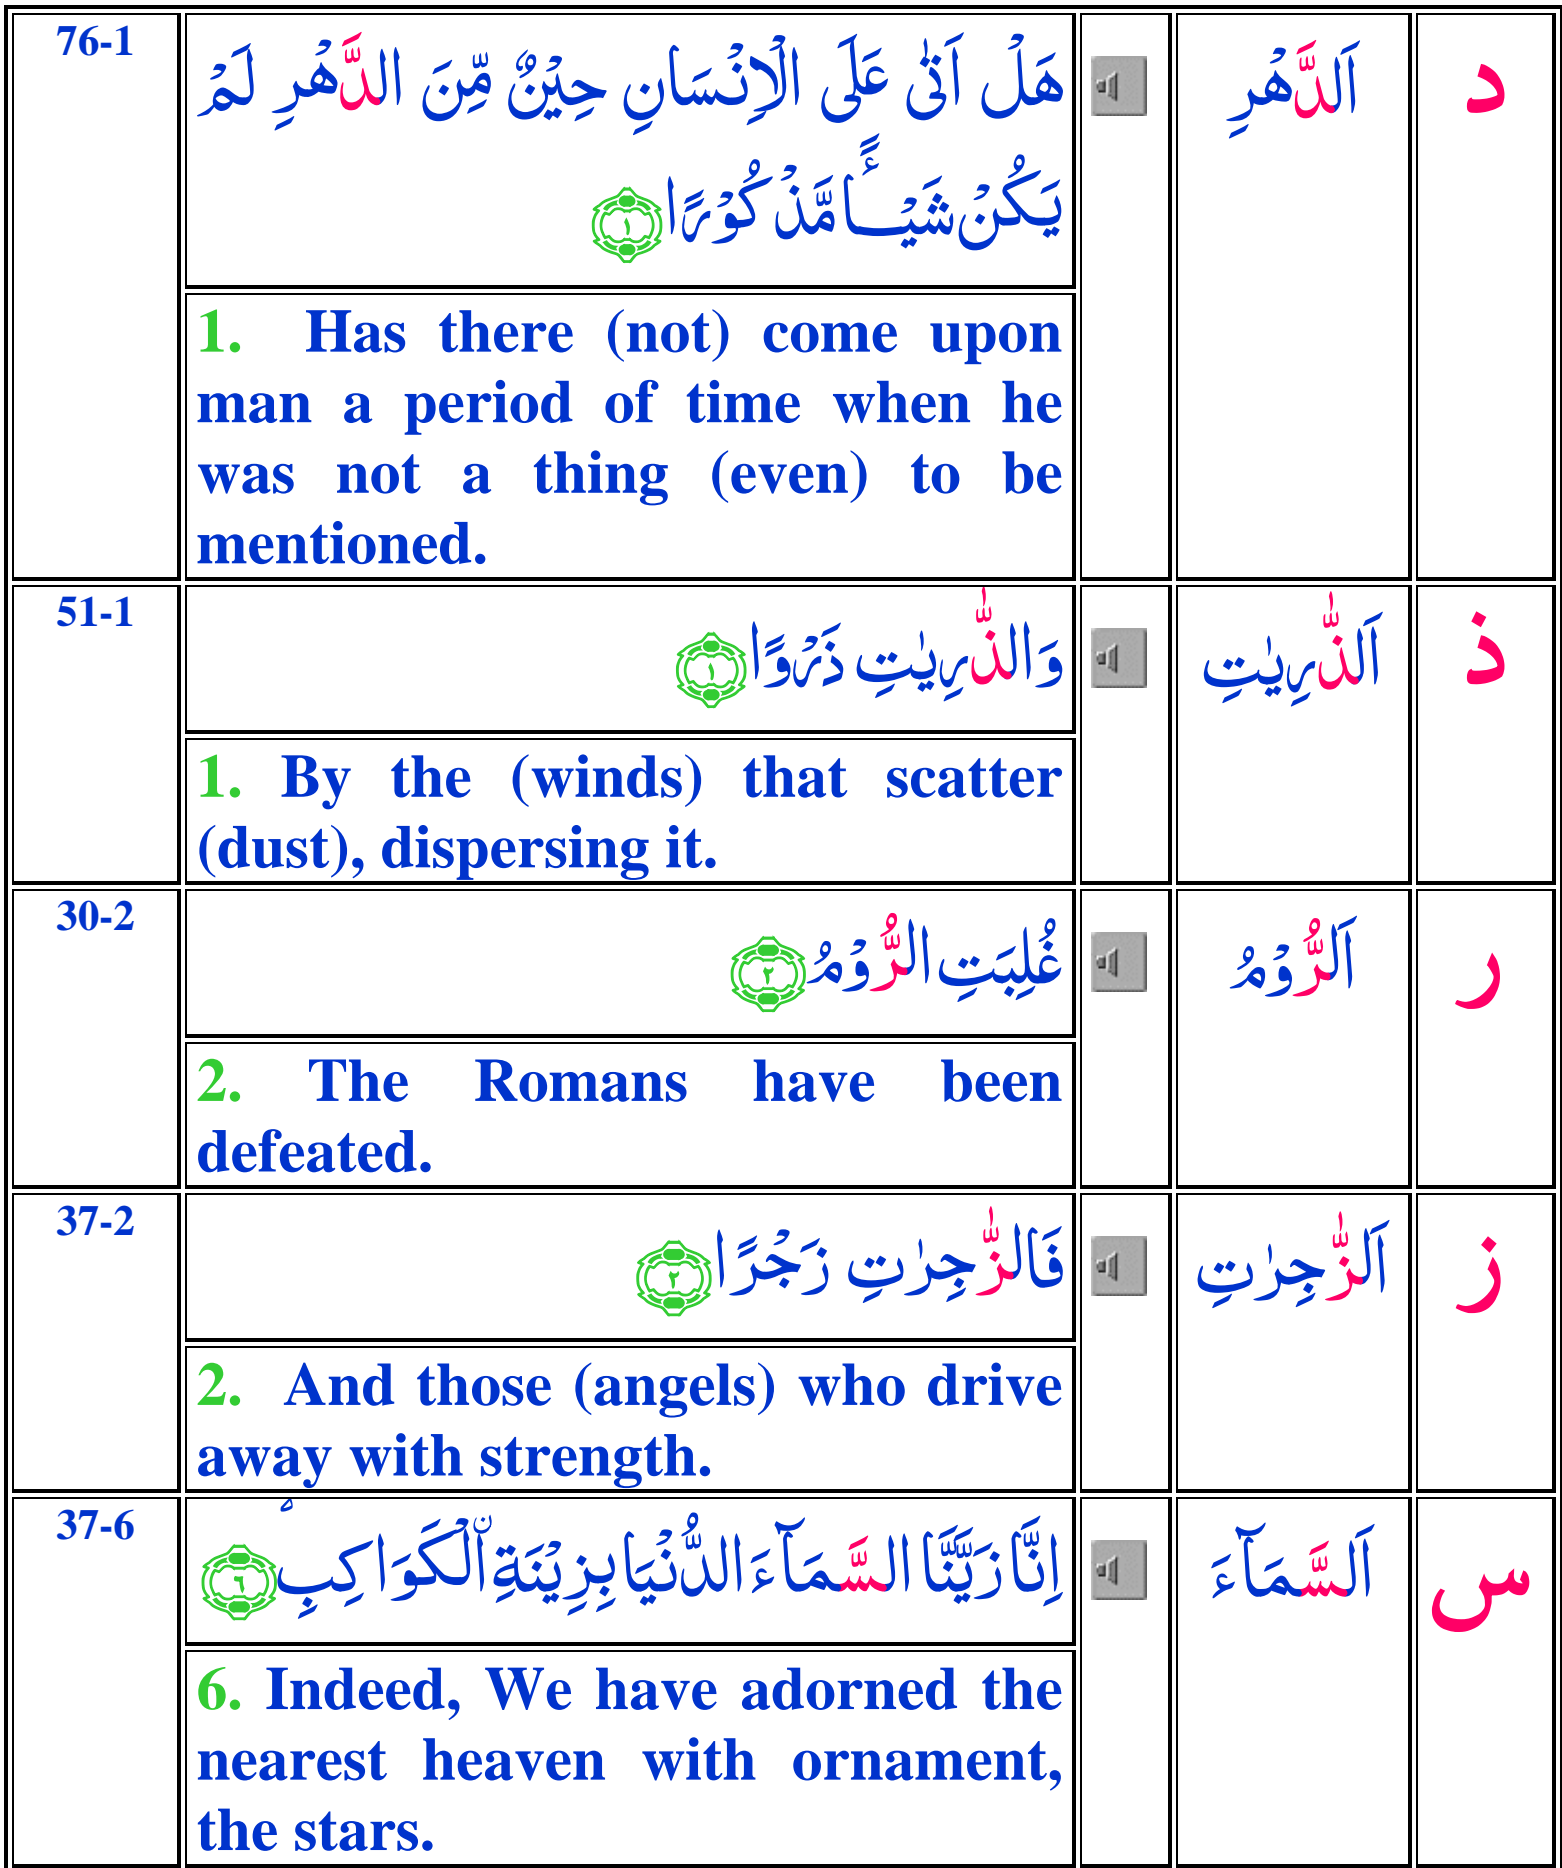 76-1
هَلْ اَتٰى عَلَى الْاِنْسَانِ حِيْنٌ مِّنَ الدَّهْرِ لَمْ
يَكُنْ شَيْــًٔا مَّذْكُوْرًا ۝١
اَلدَّهْرِ
د
1. Has there (not) come upon
man a period of time when he
was not a thing (even) to be
mentioned.
51-1
وَالذّٰرِيٰتِ ذَرْوًا ۝١
اَلذّٰرِيٰتِ
ذ
1. By the (winds) that scatter
(dust), dispersing it.
30-2
غُلِبَتِ الرُّوْمُ ۝٢
اَلرُّوْمُ
ر
2. The Romans have been
defeated.
37-2
فَالزّٰجِرٰتِ زَجْرًا ۝٢
اَلزّٰجِرٰتِ
ز
2. And those (angels) who drive
away with strength.
37-6
اِنَّا زَيَّنَّا السَّمَآءَ الدُّنْيَا بِزِيْنَةِ اۨلْكَوَاكِبِۙ ۝٦
اَلسَّمَآءَ
س
6. Indeed, We have adorned the
nearest heaven with ornament,
the stars.